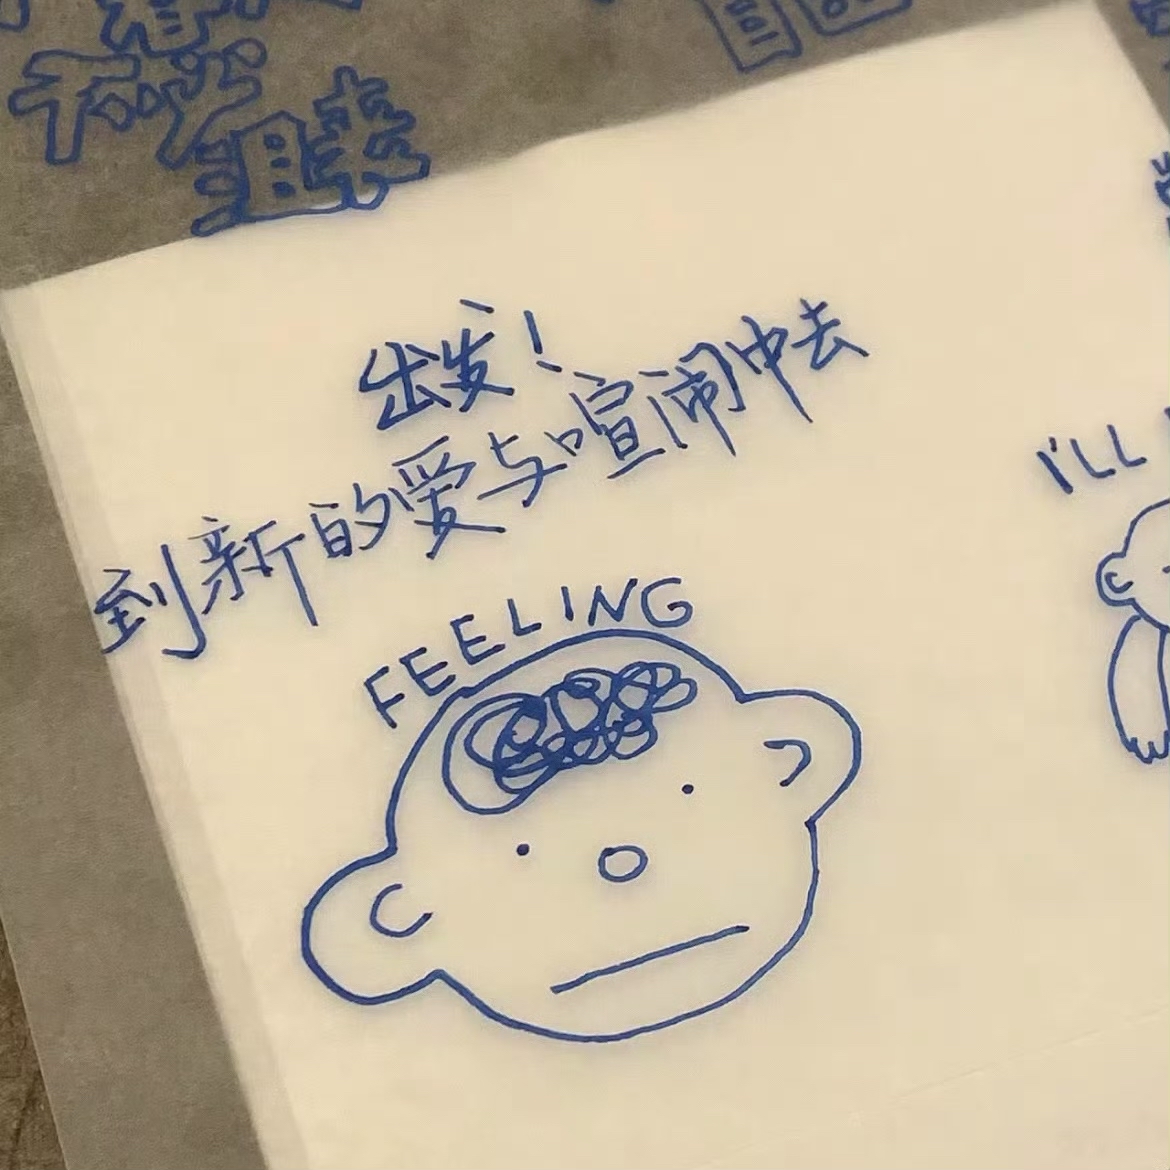 出发！
到新的爱与喧闹中去
FEELING
I'LL